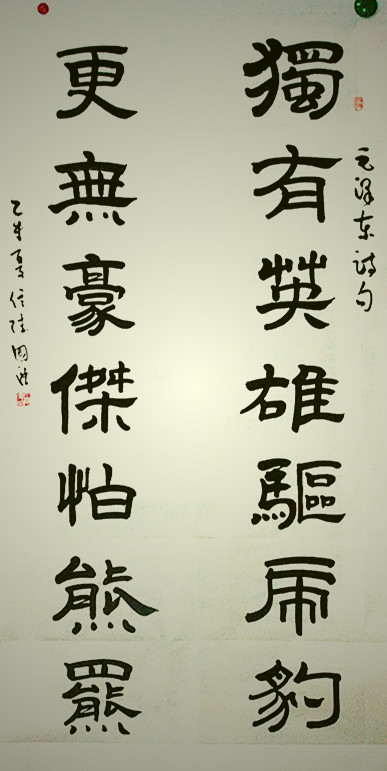 毛泽东诗句
獨有英雄驅虎豹
更無豪傑怕熊羆
乙未夏信陵國